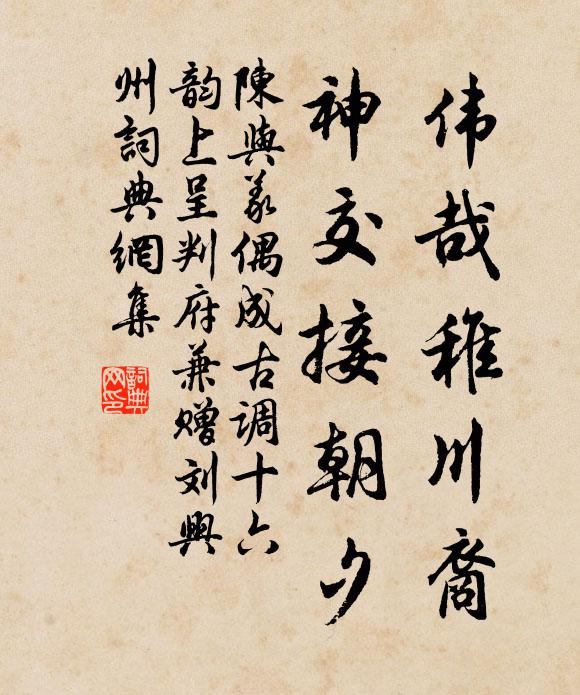 伟哉稚川裔
神交接朝夕
陳與義偶成古调十六
韵上呈判府兼赠刘興
州詞典網集
詞典网印